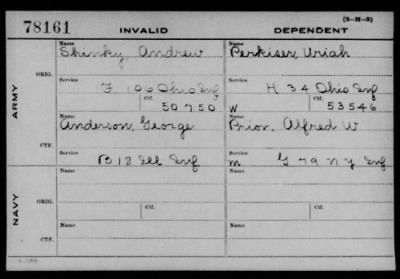 78161 INVALID DEPENDENT (3-H-3)
ARMY
ORIG.
Name Name
Shinky, Andrew Perkiser, Uriah
Service Service
F 106 Ohio Inf H 34 Ohio Inf
Ctf. Ctf.
50750 W 53546
CTF.
Name Name
Anderson, George Prior, Alfred W
Service Service
B 13 Ill Inf M G 79 N Y Inf
NAVY
ORIG.
Name Name
Service Ctf. Service Ctf.
CTF.
Name Name